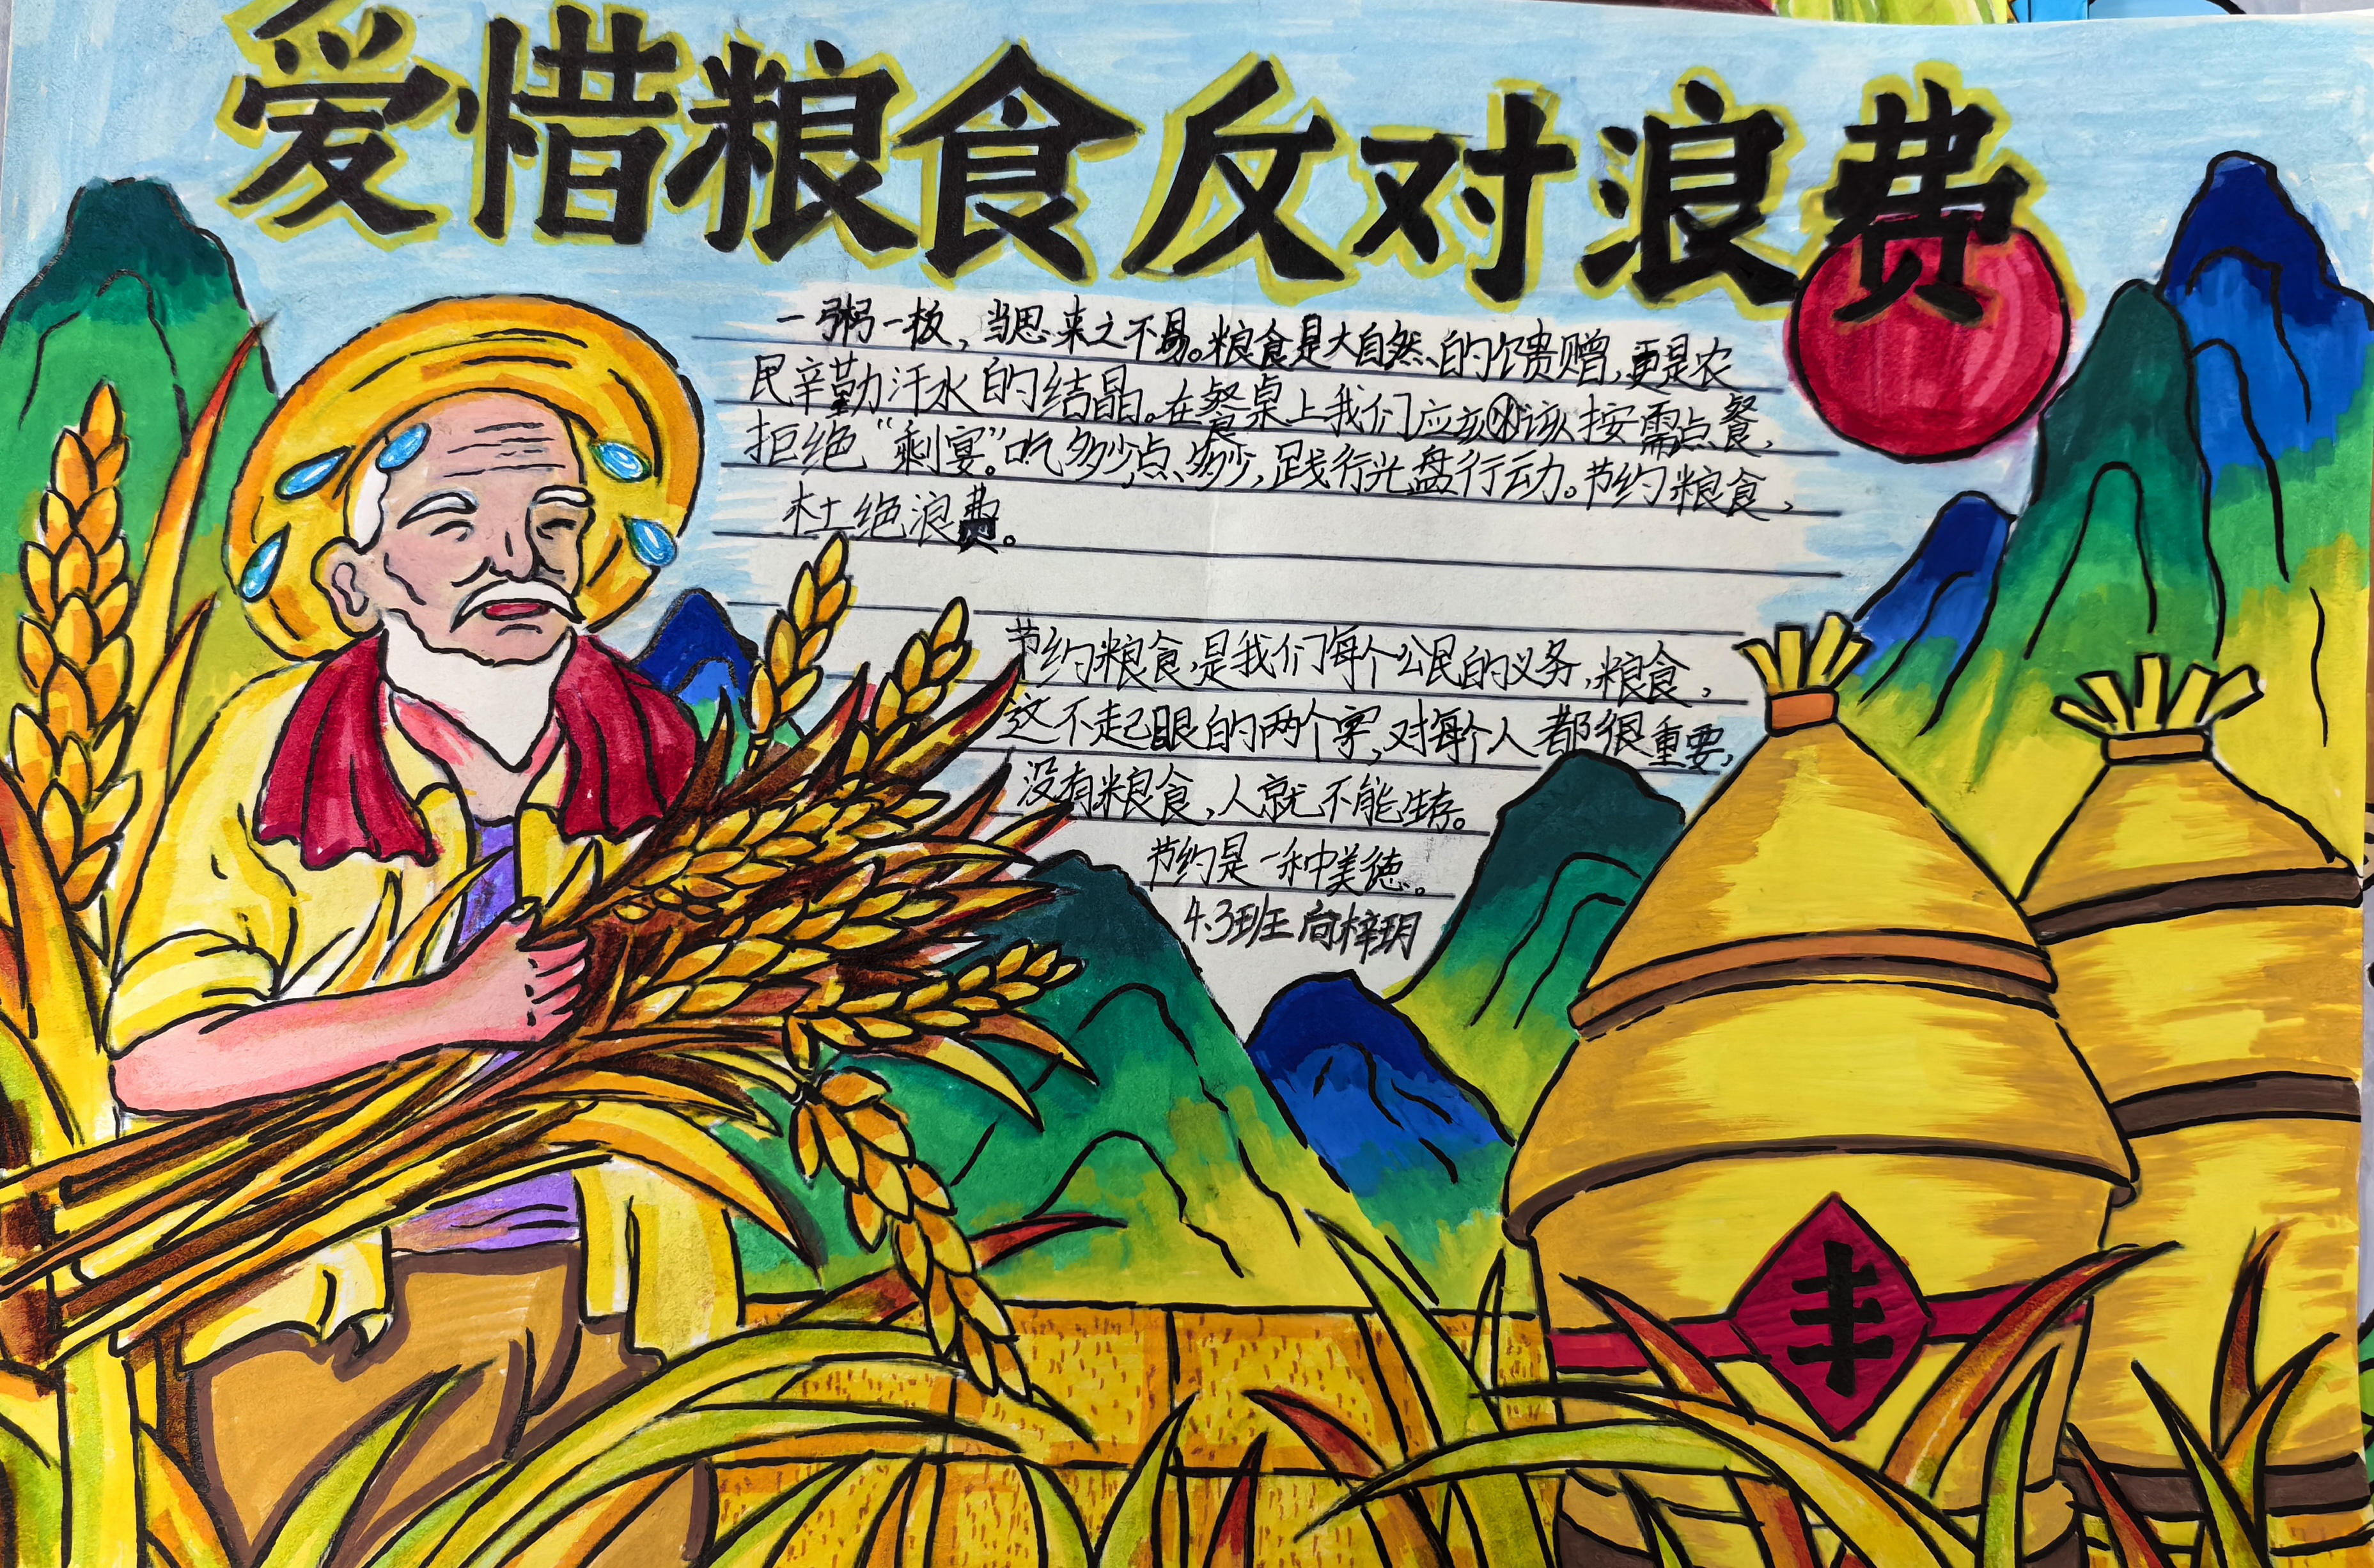 爱惜粮食反对浪费
一粥一板，当思来之不易。粮食是大自然的馈赠，更是农
民辛勤汗水的结晶。在餐桌上我们应该该按需点餐，
拒绝“剩宴”。吃多少点多少，践行光盘行动。节约粮食，
杜绝浪费。
节约粮食，是我们每个公民的义务，粮食，
这不起眼的两个字，对每个人都很重要，
没有粮食，人就不能生存。
节约是一种美德。
4.3班 向梓玥
丰